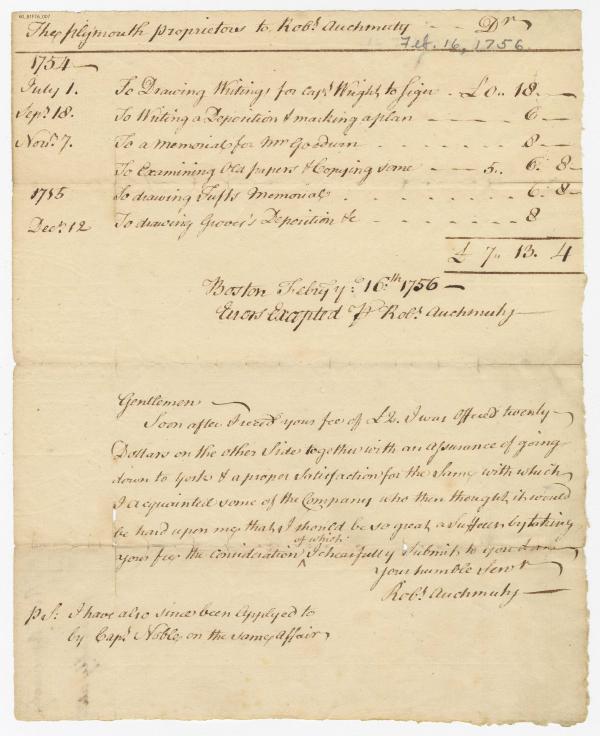 60_81F16_007
The Plymouth proprietors to Robt. Auchmuty — Dr
Feb. 16, 1756
1754
July 1. To Drawing Writings for Capt. Wright to Sign - £0.. 18. —
Sept. 18. To Writing a Deposition & marking a plan — — — 6 —
Novr. 7. To a Memorial for Mr Goodwin - - - 8 —
To Examining Old papers & Copying some — — 5.. 6. 8 —
1755 To drawing Tufts Memorial . - - - - - 6. 8 —
Decr. 12 To drawing Grover's Deposition &c - - - - - 8
£ 7.. 13. 4
Boston Febry. 16.th 1756 —
Errors Excepted Robt. Auchmuty
Gentlemen
Soon after I recd your fee of £2. I was Offered twenty
Dollars on the other Side together with an assurance of going
down to York & a proper Satisfaction for the Same, with which
I acquainted some of the Company who then thought it would
be hard upon me that I should be so great a Sufferer by taking
your fee the Consideration of which I chearfully Submit to you
Your humble Servt
Robt. Auchmuty
PS: I have also since been Applyed to
by Capt. Noble, on the same Affair